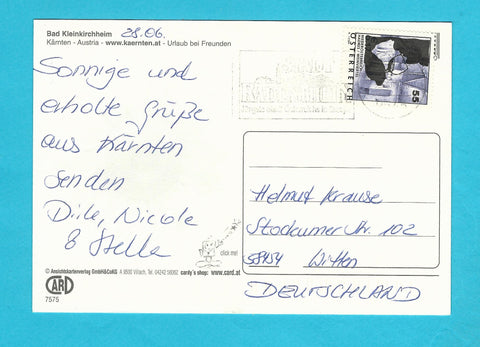 Bad Kleinkirchheim
28.06.
Kärnten - Austria - www.kaernten.at - Urlaub bei Freunden
Sonnige und
erholte Grüße
aus Kärnten
senden
Dile, Nicole
& Stella
ÖSTERREICH
55
Helmut Krause
Stockumer Str. 102
58454 Witten
DEUTSCHLAND
click me!
© Ansichtskartenverlag GmbH&CoKG A 9500 Villach, Tel. 04242 58062 cardy's shop: www.card.at
CARD
7575